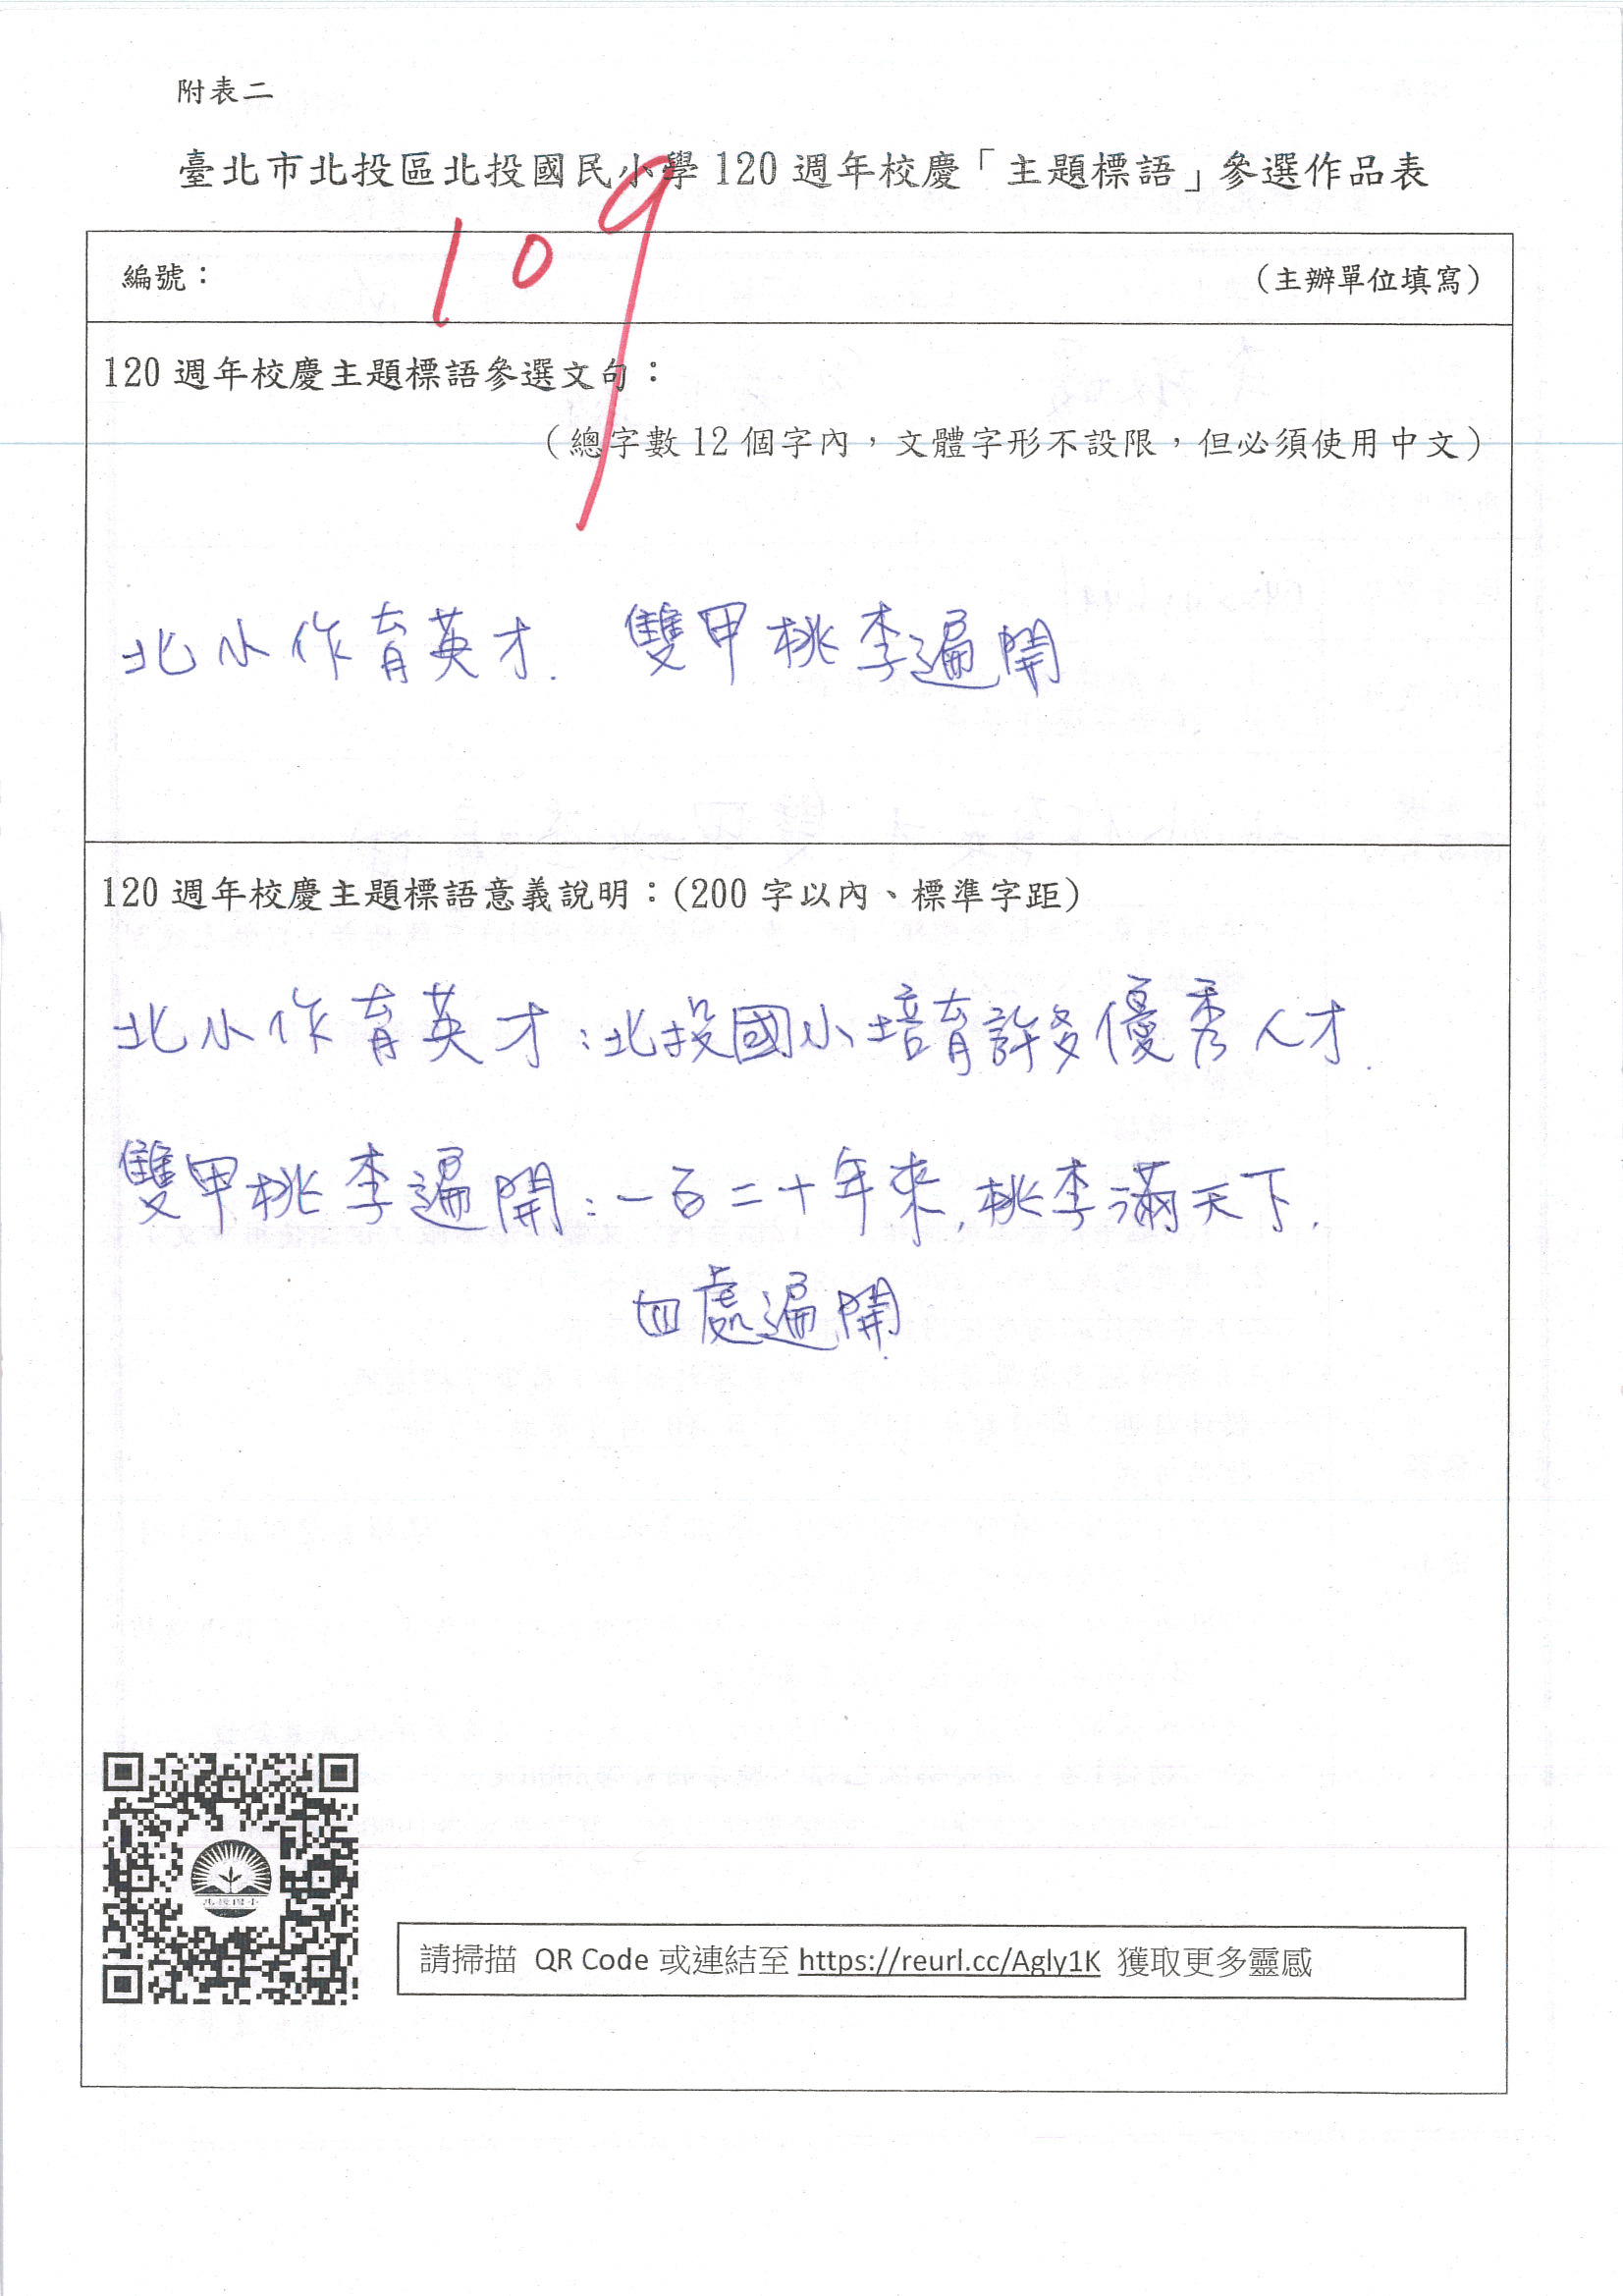 附表二
臺北市北投區北投國民小學120週年校慶「主題標語」參選作品表
編號： 109 （主辦單位填寫）
120週年校慶主題標語參選文句：
（總字數12個字內，文體字形不設限，但必須使用中文）
北小作育英才. 雙甲桃李遍開
120週年校慶主題標語意義說明：(200字以內、標準字距)
北小作育英才：北投國小培育許多優秀人才.
雙甲桃李遍開：一百二十年來, 桃李滿天下,
四處遍開.
北投國小
請掃描 QR Code 或連結至 https://reurl.cc/Agly1K 獲取更多靈感